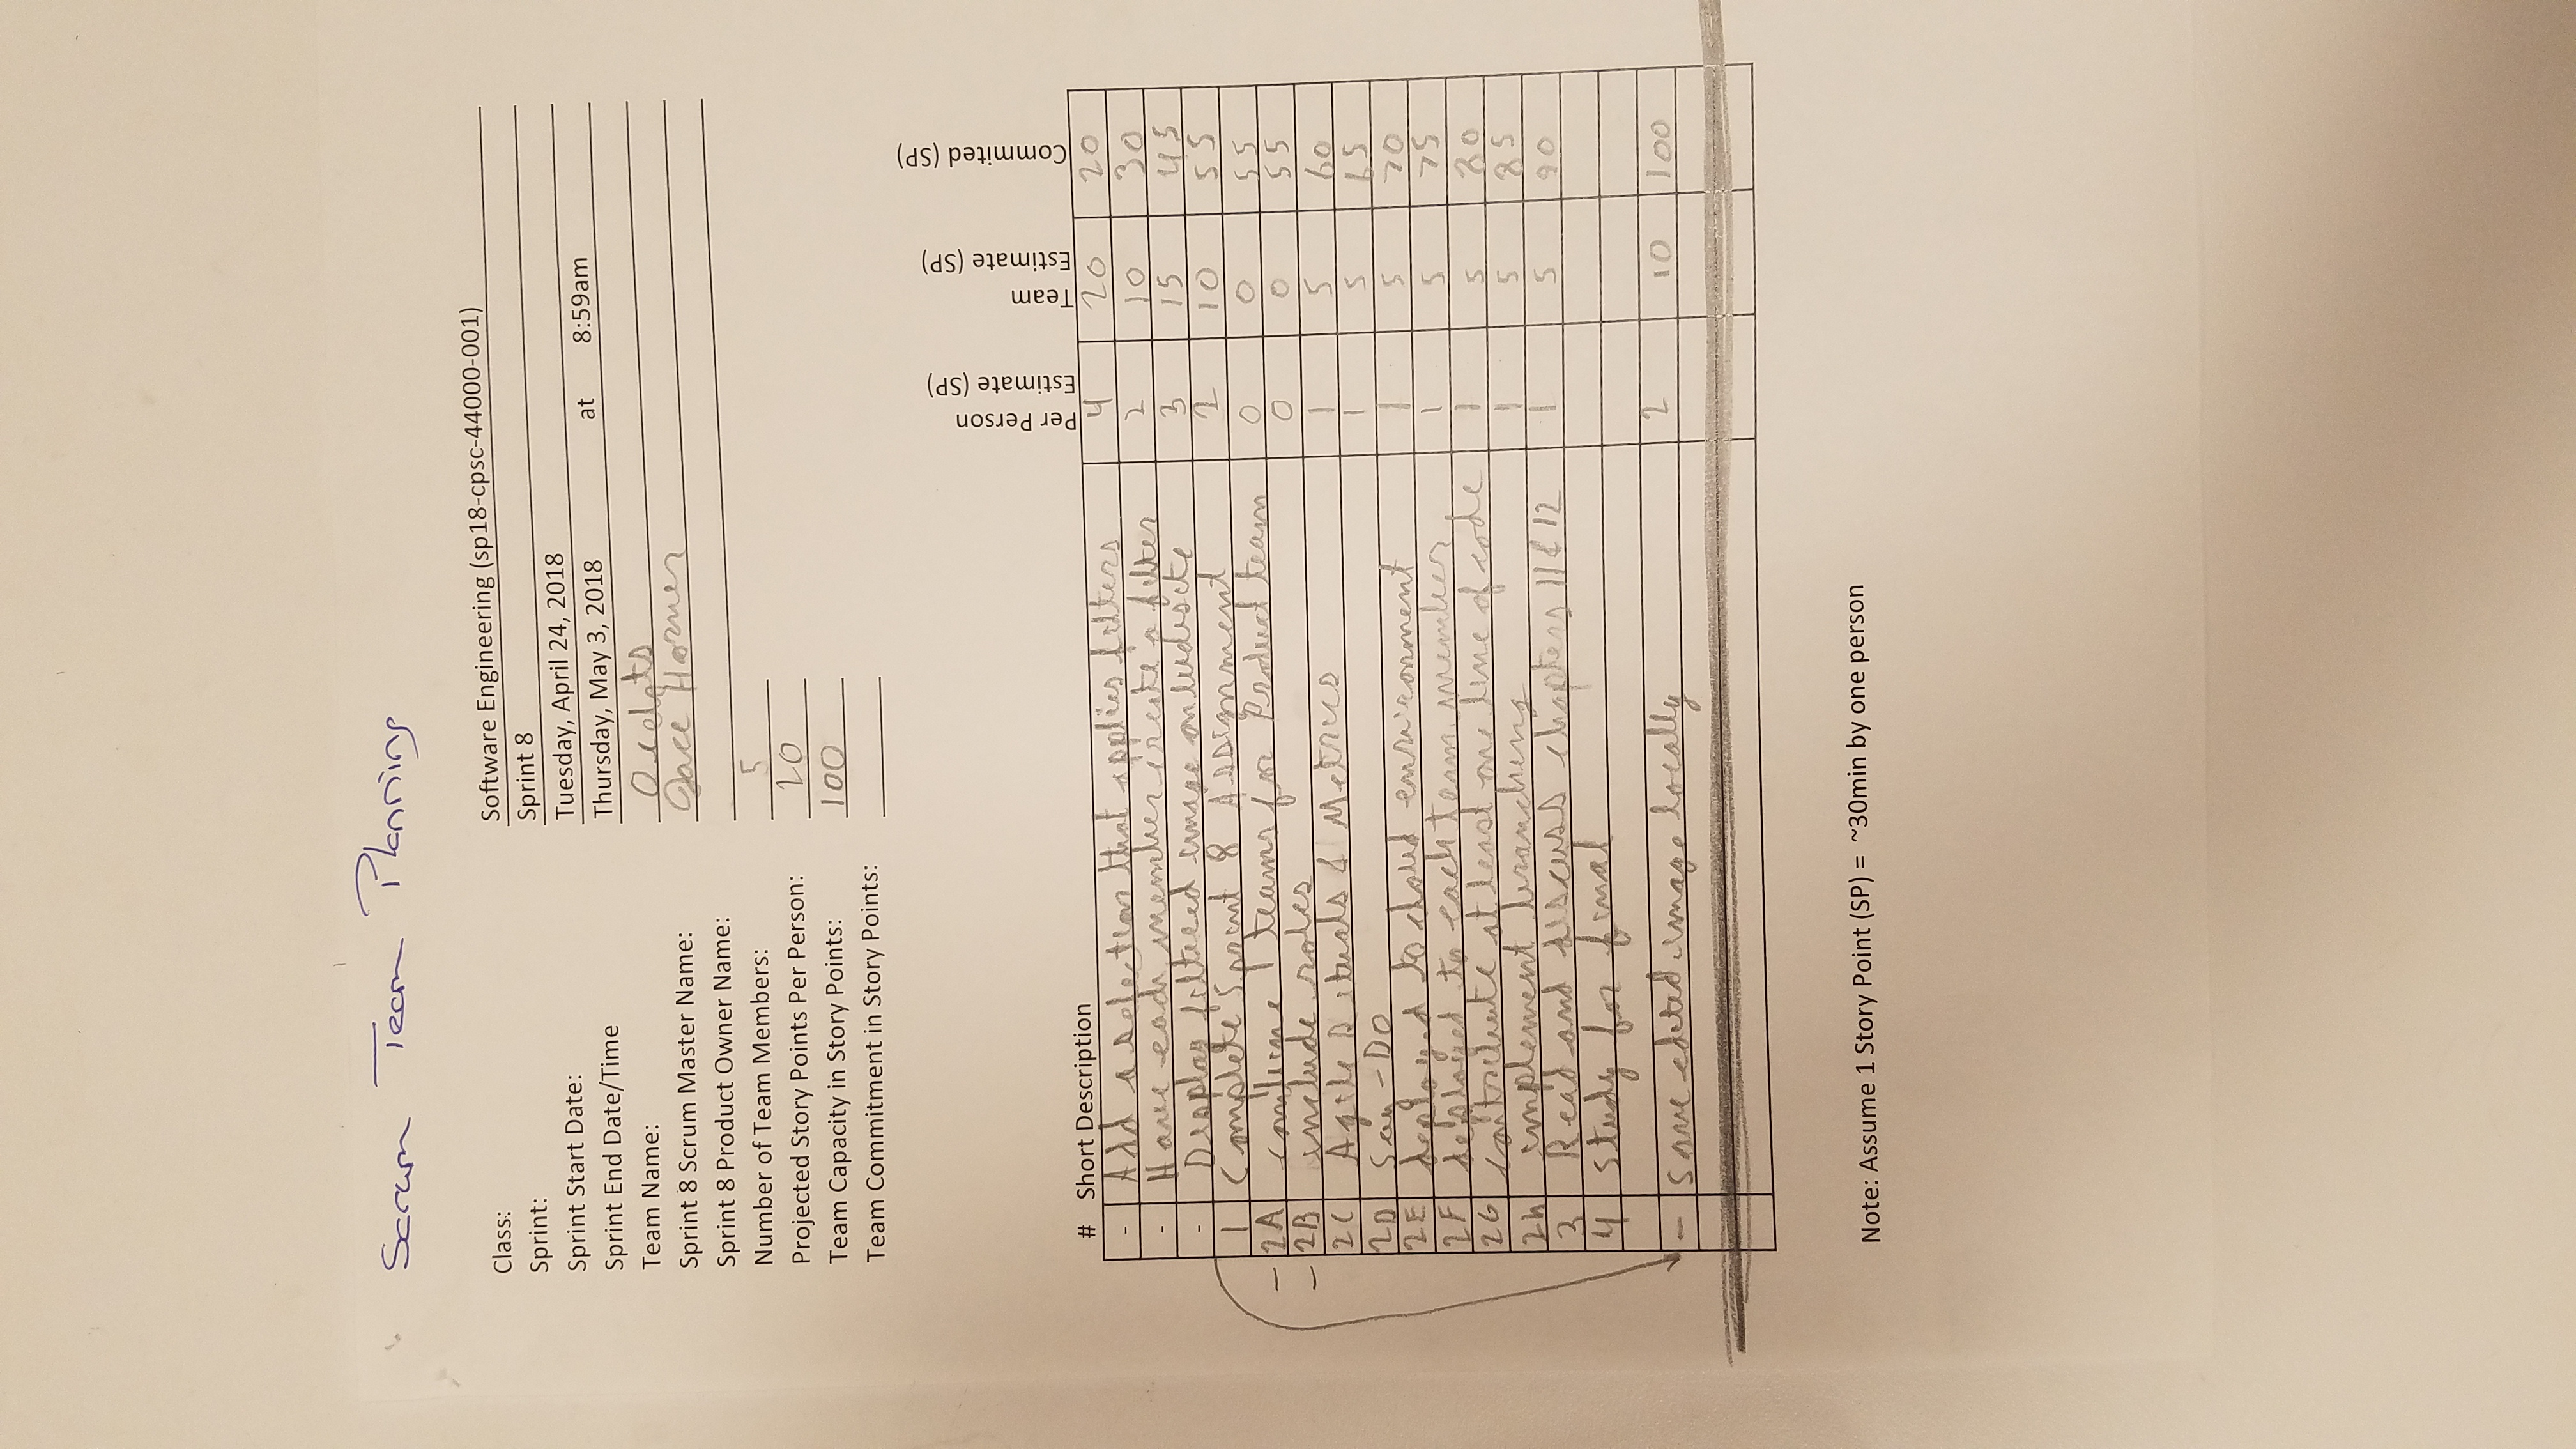 Scrum Team Planning
Class: Software Engineering (sp18-cpsc-44000-001)
Sprint: Sprint 8
Sprint Start Date: Tuesday, April 24, 2018
Sprint End Date/Time Thursday, May 3, 2018 at 8:59am
Team Name:
Sprint 8 Scrum Master Name: Jace Horner
Sprint 8 Product Owner Name:
Number of Team Members: 5
Projected Story Points Per Person: 20
Team Capacity in Story Points: 100
Team Commitment in Story Points:
# Short Description Per Person Estimate (SP) Team Estimate (SP) Commited (SP)
- Add a selection that applies filters 4 20 20
- Have each member create a filter 2 10 30
- Display filtered image on website 3 15 45
1 Complete Sprint 8 Assignment 2 10 55
- 2A combine teams for Product team 0 0 55
- 2B include roles 0 0 55
2C Agile Rituals & Metrics 1 5 60
2D Say-DO 1 5 65
2E deployed to cloud environment 1 5 70
2F deployed to each team member 1 5 75
2G contribute at least one line of code 1 5 80
2h implement branching 1 5 85
3 Read and discuss chapters 11 & 12 1 5 90
4 study for final
- save edited image locally 2 10 100
Note: Assume 1 Story Point (SP) = ~30min by one person